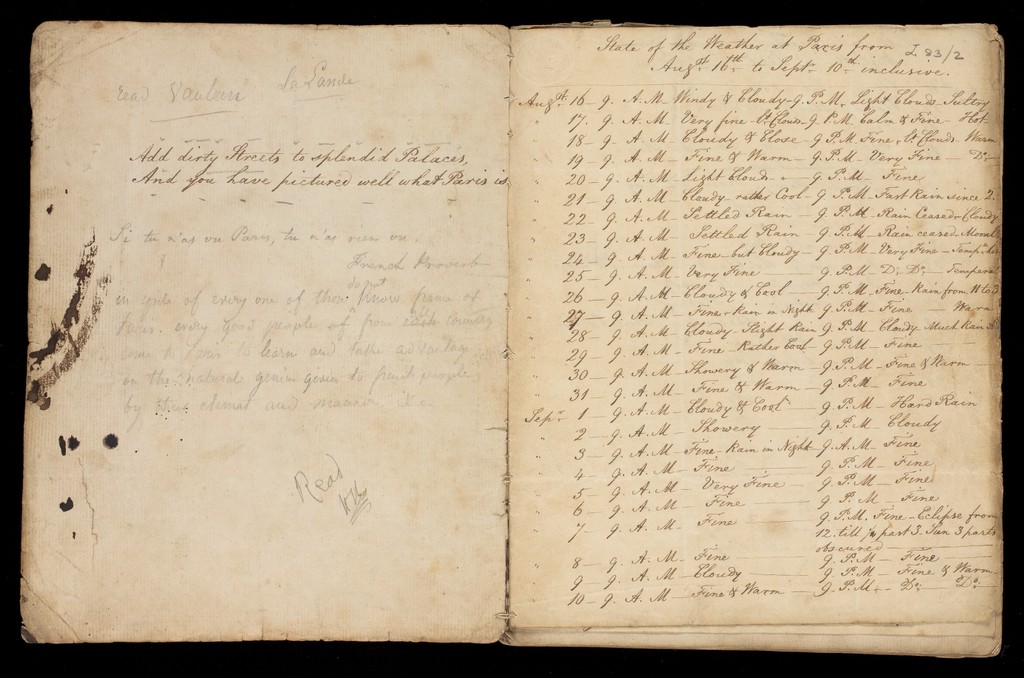 read Vauban La Lande
Add dirty Streets to splendid Palaces,
And you have pictured well what Paris is
Si tu n'as vu Paris, tu n'as rien vu.
French Proverb
do not
in spite of every one of those know from at
every good people of from each country
come to Paris to learn and take advantage
on the natural genius to french people
by their climat and manner &c
Read
State of the Weather at Paris from I. 83/2
Augst. 16th to Septr 10th inclusive.
Augst. 16 - 9. A. M - Windy & Cloudy - 9 P. M. Light Clouds - Sultry
" 17. 9. A. M - Very fine - Lt Clouds - 9 P. M Calm & Fine - Hot
" 18 - 9. A. M - Cloudy & Close - 9 P. M Fine, Lt Clouds Warm
" 19 - 9. A. M - Fine & Warm - 9 P. M - Very Fine - Do -
" 20 - 9. A. M - Light Clouds - 9 P. M - Fine
" 21 - 9. A. M - Cloudy - rather Cool - 9 P. M - Fast Rain since 2.
" 22 - 9. A. M - Settled Rain - 9 P. M - Rain Ceased - Cloudy
" 23 - 9. A. M - Settled Rain - 9 P. M - Rain ceased
" 24 - 9. A. M - Fine - but Cloudy - 9 P. M - Very Fine -
" 25 - 9. A. M - Very Fine - 9 P. M - Do. Do -
" 26 - 9. A. M - Cloudy & Cool - 9 P. M - Fine - Rain from 11 to 3
" 27 - 9. A. M - Fine - Rain in Night 9 P. M - Fine - Warm
" 28 - 9. A. M - Cloudy - Slight Rain 9 P. M - Cloudy Much Rain
" 29 - 9. A. M - Fine - Rather Cool - 9 P. M - Fine
" 30 - 9. A. M - Showery & Warm - 9 P. M - Fine & Warm
" 31 - 9. A. M - Fine & Warm - 9 P. M - Fine
Septr. 1 - 9. A. M - Cloudy & Cool - 9 P. M - Hard Rain
" 2 - 9. A. M - Showery - 9 P. M Cloudy
" 3 - 9. A. M - Fine - Rain in Night - 9 A. M Fine
" 4 - 9. A. M - Fine - 9 P. M - Fine
" 5 - 9. A. M - Very Fine - 9 P. M - Fine
" 6 - 9. A. M - Fine - 9 P. M - Fine
" 7 - 9. A. M - Fine - 9 P. M. Fine - Eclipse from
12. till past 3. Sun 3 parts
obscured
" 8 - 9. A. M - Fine - 9 P. M - Fine
" 9 - 9. A. M - Cloudy - 9 P. M - Fine & Warm
" 10 - 9. A. M - Fine & Warm - 9 P. M - Do - Do.